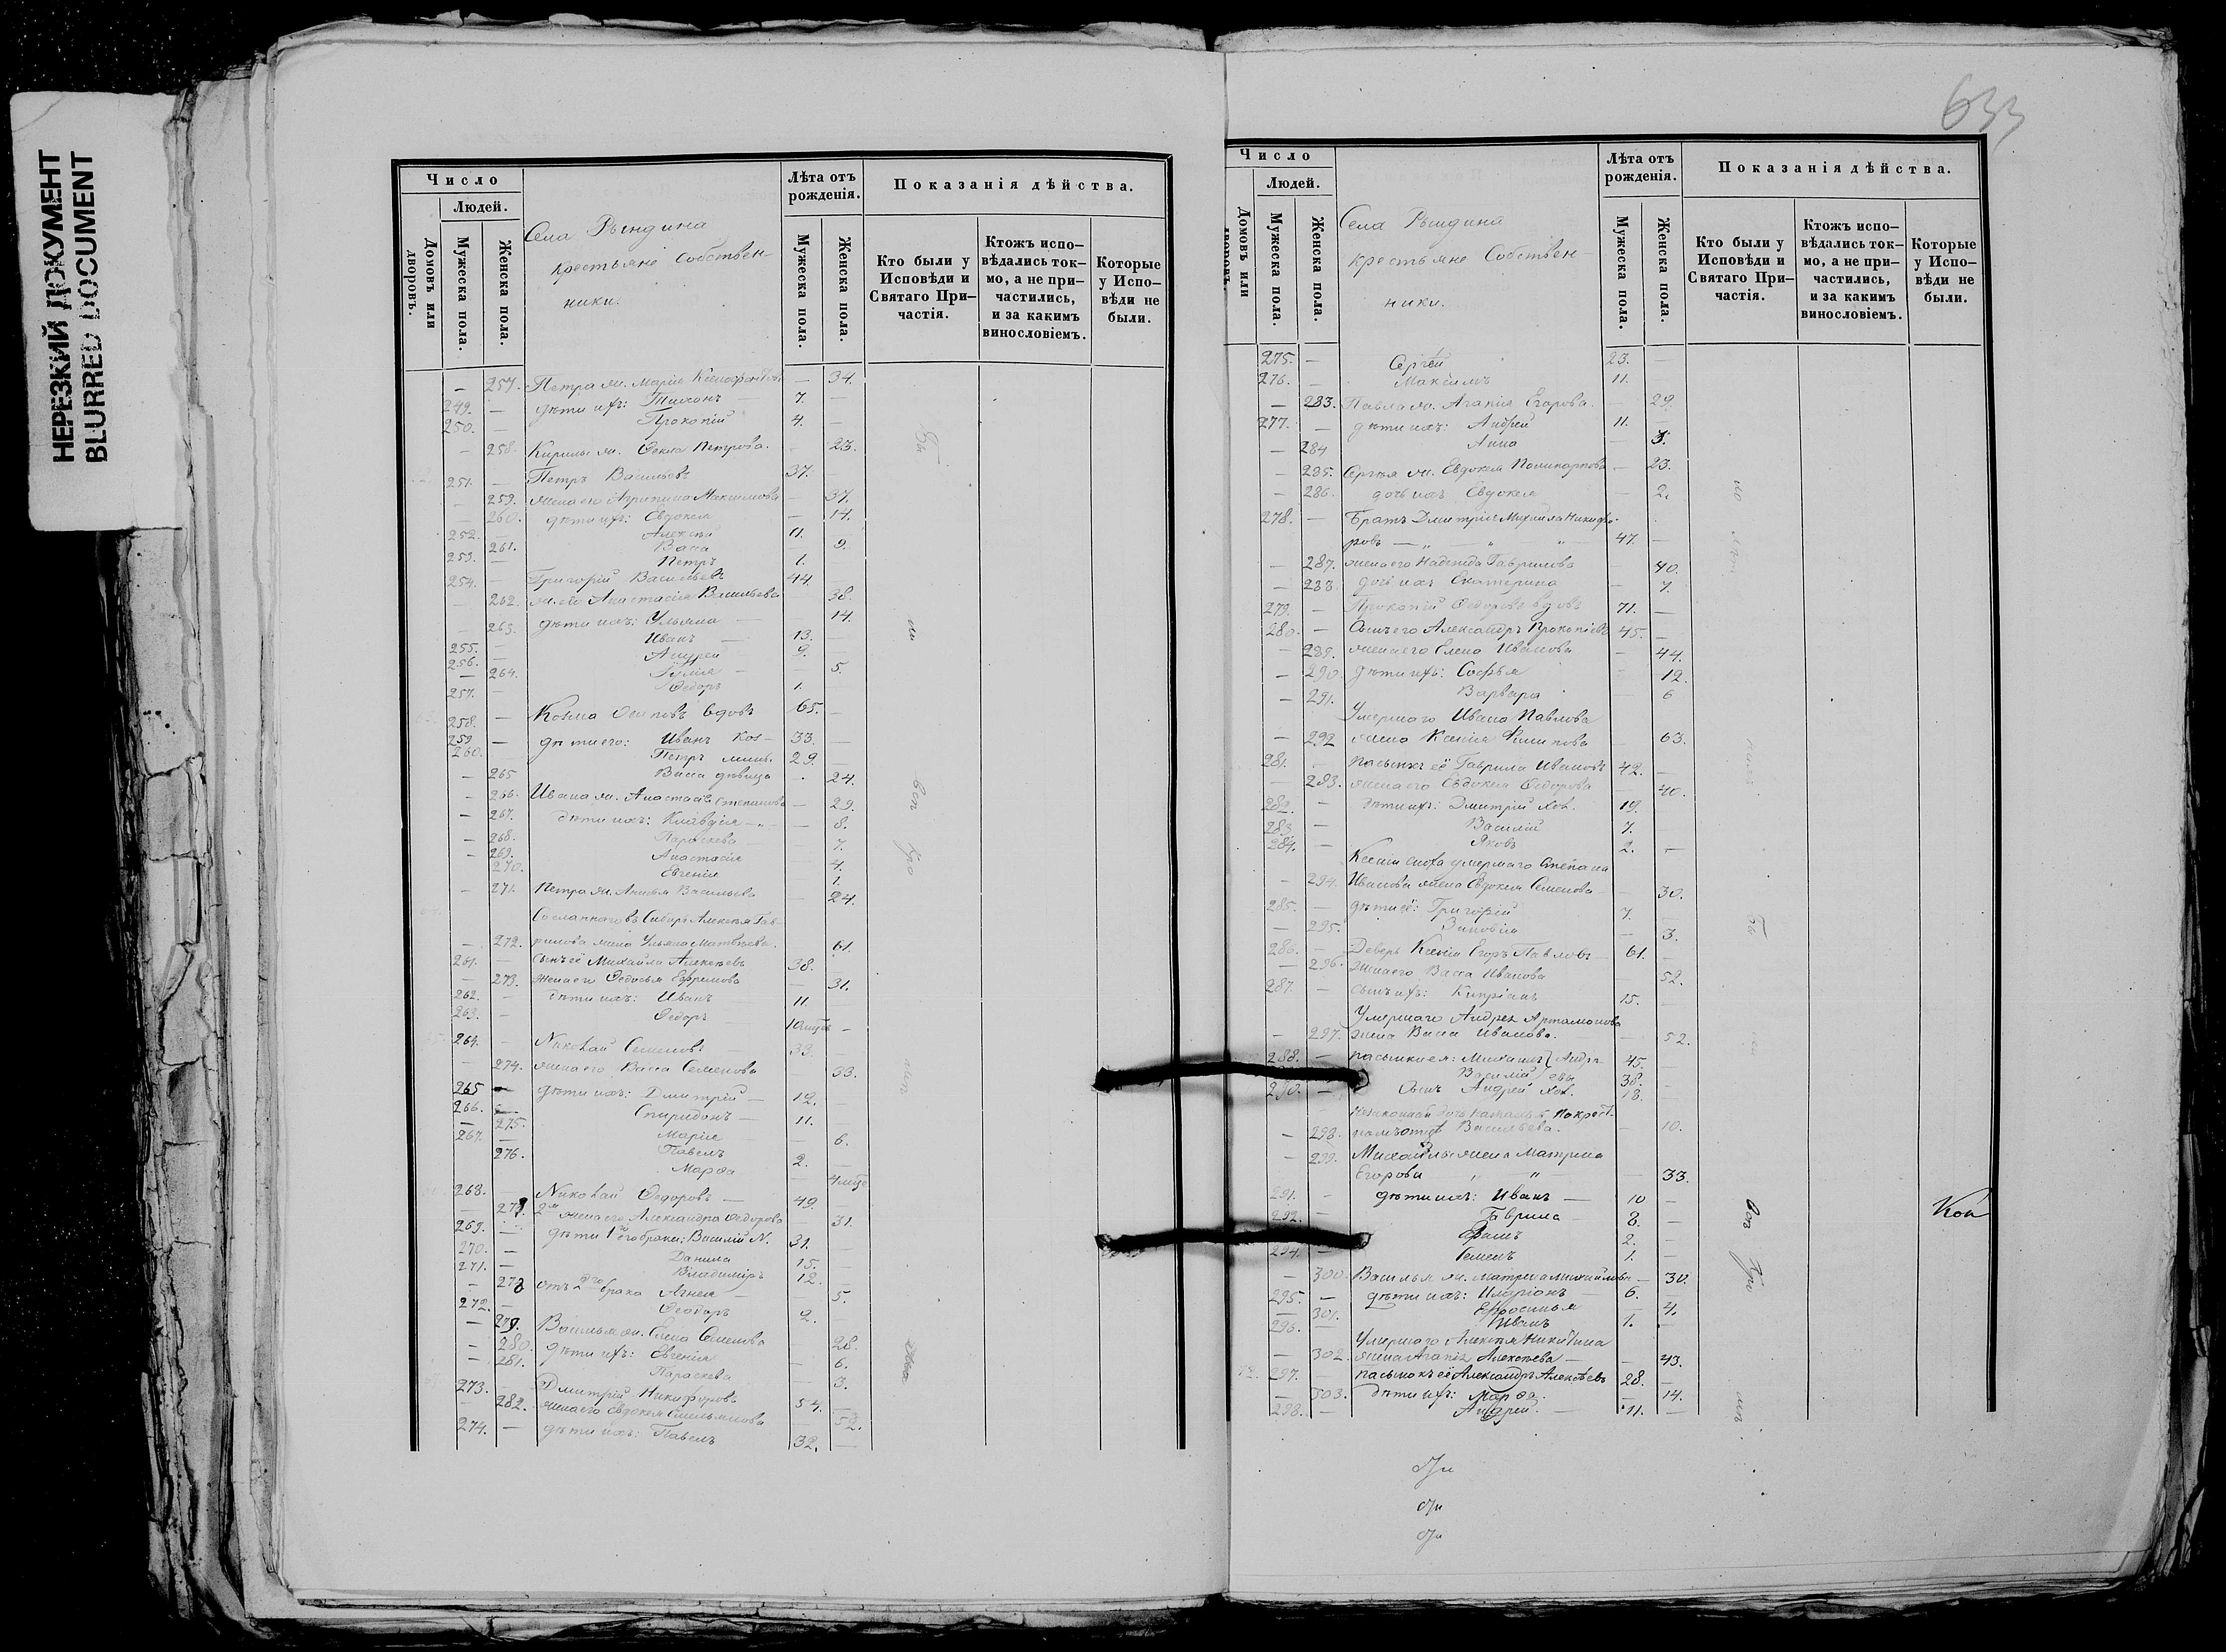 НЕРЕЗКИЙ ДОКУМЕНТ
BLURRED DOCUMENT
Число
Людей.
Домовъ или дворовъ.
Мужеска пола.
Женска пола.
Села Рындина
крестьяне собствен-
ники.
Лѣта отъ рожденія.
Мужеска пола.
Женска пола.
Показанія дѣйства.
Кто были у Исповѣди и Святаго При-частія.
Ктожъ испо-вѣдались ток-мо, а не при-частились, и за какимъ винословіемъ.
Которые у Испо-вѣди не были.
— 257. Петра ж. Марія Ксенофонтова — 34.
249. — дѣти ихъ: Тихонъ 7. —
250. — Прокопій 4. —
— 258. Кирилы ж. Ѳекла Петрова. — 23.
251. — Петръ Васильевъ 37. —
— 259. жена его Агрипина Максимова — 37.
— 260. дѣти ихъ: Евдокея — 14.
252. — Алексѣй 11. —
261. Васса — 9.
253. — Петръ 1.
254. — Григорій Васильевъ 44.
— 262. ж. его Анастасія Васильева 38.
— 263. дѣти ихъ: Ульяна — 14.
255. — Иванъ — 13.
256. — Андрей 9. —
— 264. Юлія — — 5.
257. — Ѳедоръ 1.
258. — Козма Осиповъ вдовъ 65. —
259 — дѣти его: Иванъ Хол- 33. —
260. Петръ 29. —
— 265 Васса дѣвица 24.
— 266. Ивана ж. Анастасія Степанова — 29.
— 267. дѣти ихъ: Клавдія — 8.
— 268. Параскева — 7.
— 269. Анастасія 4.
270. Евгенія 1.
— 271. Петра ж. Анисья Васильева — 24.
Сосланнаго въ Сибирь Алексѣя Гав-
— 272. рилова жена Ульяна Матвѣева. 61.
261. — сынъ её Михайла Алексѣевъ 38. —
— 273. жена его Ѳедосья Ефремова — 31.
262. — дѣти ихъ: Иванъ 11
263. — Ѳедоръ —
264. — Николай Семеновъ 33. —
— 274. жена его Васса Семенова 33.
265 — дѣти ихъ: Дмитрій — 12. —
266. — Спиридонъ — 11.
— 275. Марія — 6.
267. — Павелъ 2. —
276. Марѳа — 4
268. Николай Ѳедоровъ — 49.
— 277. 2я жена его Александра Ѳедорова 31.
269. — дѣти 1го его брака: Василій N. 31.
270. — Данила 15.
271. — Владиміръ 12.
— 278 отъ 2го брака Агнея — 5.
272. — Ѳеодоръ 2.
— 279. Василья ж. Елена Семенова 28.
— 280. дѣти ихъ: Евгенія 6.
— 281. Параскева — 3.
273. Дмитрій Никифоровъ 54. —
— 282. жена его Евдокея Емельянова 52.
274. — дѣти ихъ: Павелъ 32. —
633
Число
Людей.
Домовъ или дворовъ.
Мужеска пола.
Женска пола.
Села Рындина
крестьяне Собствен-
ники.
Лѣта отъ рожденія.
Мужеска пола.
Женска пола.
Показанія дѣйства.
Кто были у Исповѣди и Святаго При-частія.
Ктожъ испо-вѣдались ток-мо, а не при-частились, и за какимъ винословіемъ.
Которые у Испо-вѣди не были.
275. — Сергѣй 23. —
276. — Максимъ 11. —
— 283. Павла ж. Агапія Егорова. — 29.
277. — дѣти ихъ: Андрей 11. —
— 284 Анна 3.
— 285. Сергѣя ж. Евдокея Поликарпова — 23.
— 286. дочь ихъ Евдокея — 2.
278. — Братъ Дмитрія Михайла Никифо-
ровъ — „ — „ 47. —
— 287. жена его Надежда Гаврилова 40.
— 288. дочь ихъ Екатерина — 7.
279. — Прокопій Ѳедоровъ вдовъ 71. —
280. — Сынъ его Александръ Прокопіевъ 45. —
— 289. жена его Елена Иванова — 44.
— 290. дѣти ихъ: Софья 12.
— 291. Варвара 6
Умершаго Ивана Павлова
— 292 жена Ксенія Филипова 63.
281. — пасынкъ её Гаврила Ивановъ 42. —
— 293. жена его Евдокея Ѳедорова — 40.
282. — дѣти ихъ: Дмитрій хол. 19. —
283. — Василій 7. —
284. — Яковъ 2. —
Ксеніи сноха умершаго Степана
— 294. Иванова жена Евдокея Семенова — 30.
285. — дѣти её: Григорій 7. —
— 295. Зиновія — 3.
286. — Деверь Ксеніи Егоръ Павловъ — 61. —
— 296. жена его Васса Иванова 52.
287. — сынъ ихъ: Кипріанъ 15. —
Умершаго Андрея Артамонова
— 297. жена Васса Иванова. — 52.
288. — пасынки ея: Михаилъ } Андр- 45. —
Василій } евы 38. —
290. — Сынъ Андрей Хол. 18. —
— 298. Васильева. — 10.
— 299. Михайлы жена Матрена
Егорова „ „ — 33.
291. — дѣти ихъ: Иванъ — 10 —
292. — Гаврила — 8. —
2. —
294. — Семенъ 1. —
— 300. Василья ж. Матрена Михайлова — 30.
295. — дѣти ихъ: Иларіонъ — 6. —
— 301. Ефросинья 4.
296. — Иванъ 1. —
Умершаго Алексѣя Никитина
— 302. жена Агапія Алексѣева — — 43.
297. — пасынокъ её Александръ Алексѣевъ 28. —
— 303. дѣти ихъ: Марѳа. — 14.
298. — Андрей. — 11. —